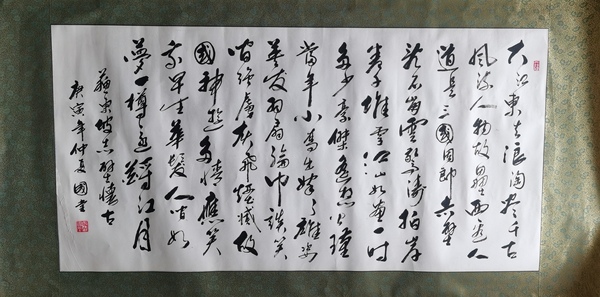 大江東去浪淘盡千古
風流人物故壘西邊人
道是三國周郎赤壁
亂石崩雲驚濤拍岸
卷千堆雪江山如畫一時
多少豪傑遙想公瑾
當年小喬出嫁了雄姿
英發羽扇綸巾談笑
間強虜灰飛煙滅故
國神遊多情應笑
我早生華髮人間如
夢一樽還酹江月
蘇東坡赤壁懷古
庚寅年仲夏國